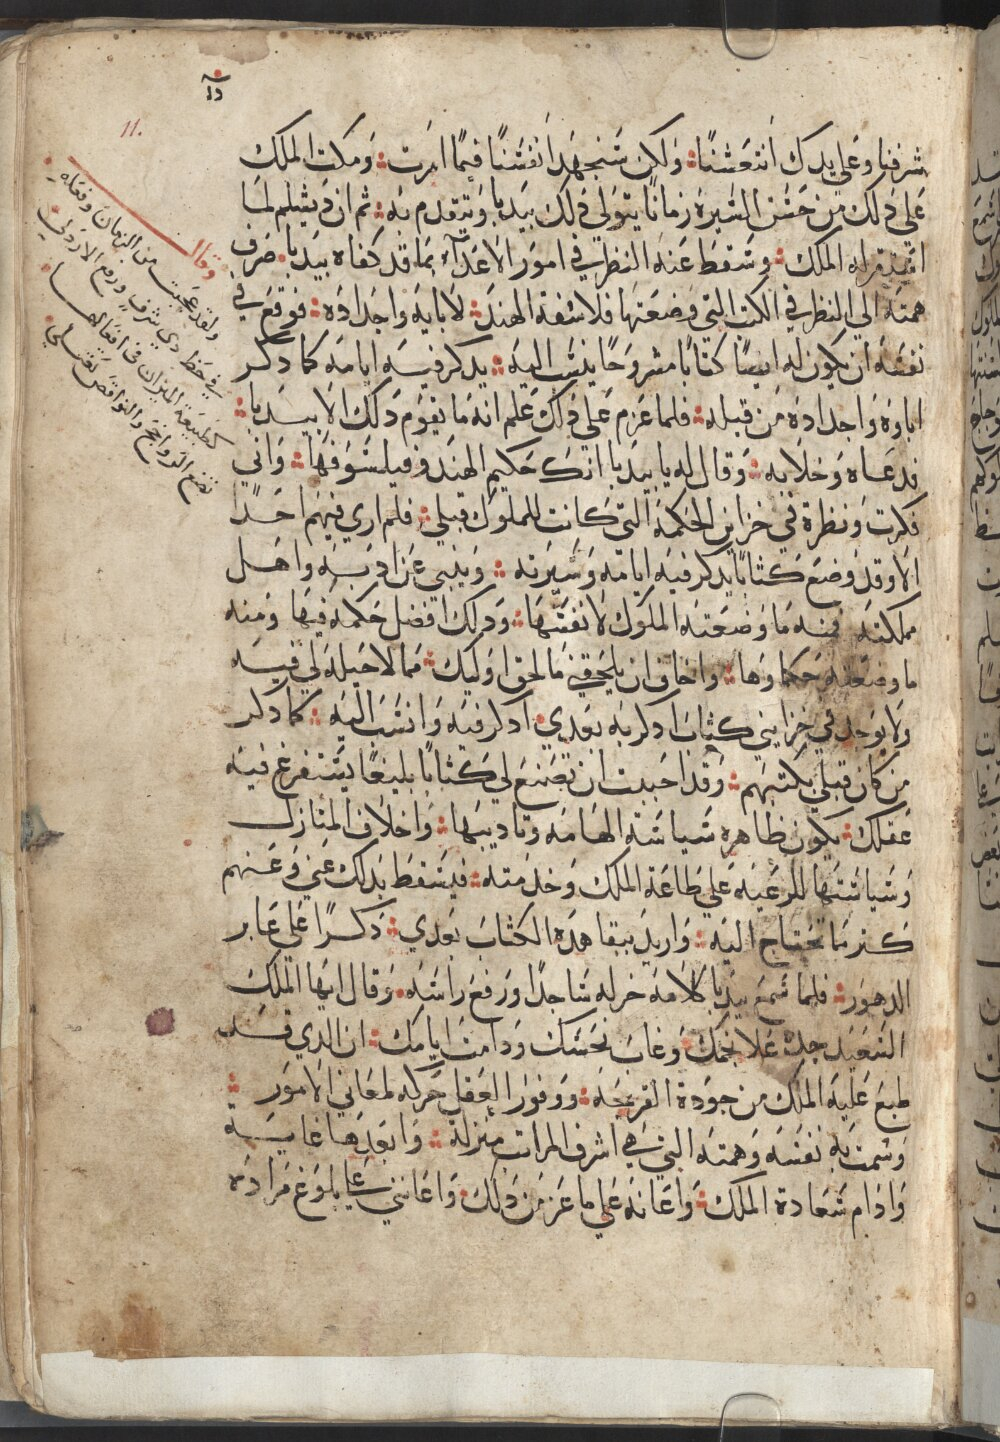 11.
شرفنا وعلي يدك أنتعشنا؛ ولكن سنجهد أنفسنا فيما امرت؛ ومكث الملك
علي ذلك من حسن السيرة زمانًا يتولي ذلك بيدبا ويتقدم به؛ ثم ان دبشليم لما
الملك؛ وسقط عنه النظر في امور الاعدآء بما قد كفاه بيدبا. صرف
همته الي النظر في الكتب التي وضعتها فلاسفة الهند؛ لابايه واجداده؛ فوقع في
نفسه ان يكون له ايضًا كتابًا مشروحًا ينسب اليه؛ يدكر فيه ايامه كما دكر
اباوه واجداده من قبله؛ فلما عزم علي ذلك علم انه ما يقوم دلك الا بيدبا؛
فدعاه وخلا به؛ وقال له يابيدبا انك حكيم الهند وفيلسوفها؛ واني
فكرت ونظرة في خزاين الحكمة التي كانت للملوك قبلي؛ فلم اري فيهم احدًا
الا وقد وضع كتابًا يدكر فيه ايامه وسيرته؛ وينبي عن ادبه واهل
مملكته فمنه ما وضعته الملوك لانفسها؛ ودلك افضل حكمه فيها ومنه
ما وضعته حكماوها؛ واخاف ان يلحقني ما لحق اوليك؛ مما لا حيلة لي فيه
ولا يوجد في خزايني كتاب ادكر به بعدي. ادكر فيه وانسب اليه؛ كما دكر
من كان قبلي بكتبهم؛ وقد احببت ان تصنع لي كتابًا بليغًا يستفرغ فيه
عقلك؛ يكون ظاهره سياسة العامه وتاديبها؛ واخلاف المنازل
وسياستها للرعيه علي طاعة الملك وخدمته؛ فيسقط بدلك عني وعنهم
كثير ما نحتاج اليه؛ واريد يبقا هده الكتاب بعدي؛ دكرًا علي غابر
الدهور؛ فلما سمع بيدبا كلامه خر له ساجدًا ورفع راسه. وقال ايها الملك
السعيد جده علا نجمك؛ وغاب نحسك ودامت ايامك؛ ان الدي قد
طبع عليه الملك من جودة القريحه؛ ووفور العقل حركه لمعاني الامور؛
وسمت به نفسه وهمته التي هي اشرف المراتب منزلة؛ وابعدها غايه
وادام سعادة الملك؛ واعانه علي ما عزم من دلك واعانني علي بلوغ مراده
وقال
ولقد عجبت من الزمان وفعله
في حفظ دي شرف ورفع الاردلي
كطبيعة الميزان في افعالها
تضع الرواجح والنواقص تعتلي